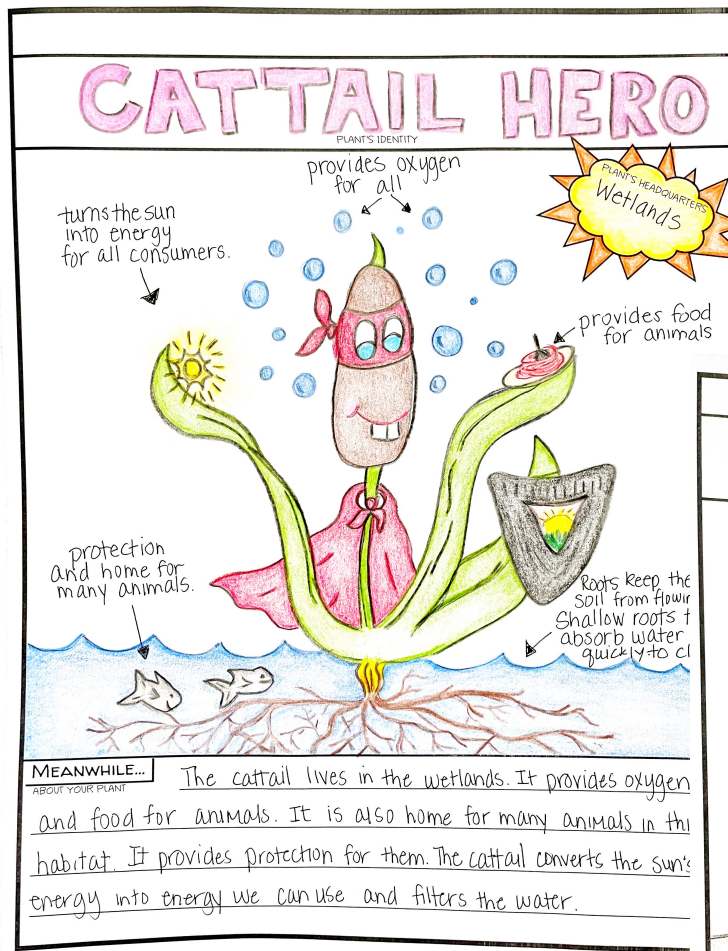 CATTAIL HERO
PLANT'S IDENTITY
PLANT'S HEADQUARTERS
Wetlands
provides oxygen
for all
turns the sun
into energy
for all consumers.
provides food
for animals
protection
and home for
many animals.
Roots keep the
soil from
Shallow roots
absorb water
quickly to
MEANWHILE...
ABOUT YOUR PLANT
The cattail lives in the wetlands. It provides oxygen
and food for animals. It is also home for many animals in
habitat. It provides protection for them. The cattail converts the sun's
energy into energy we can use and filters the water.